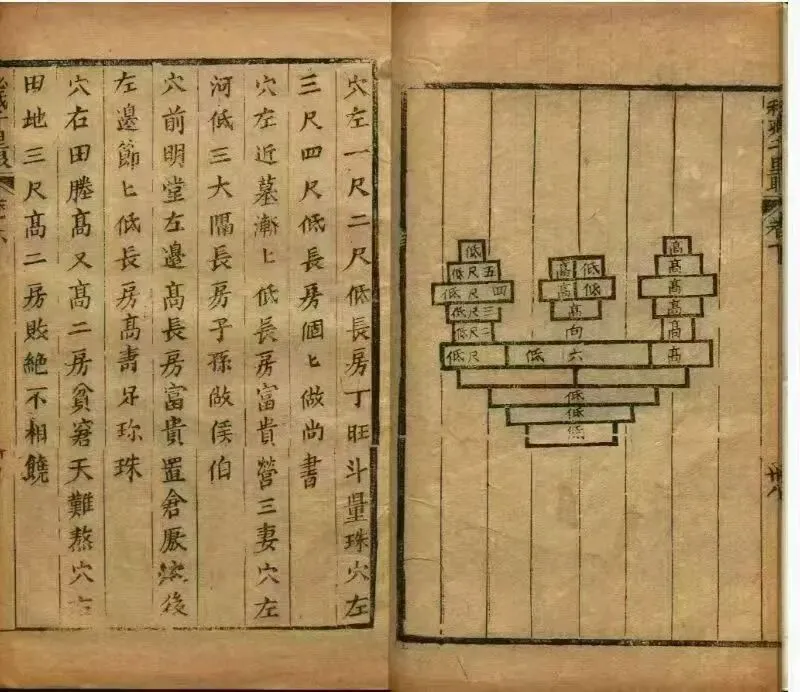 卷下
高
高
高
高
高
高
低
高
低
高
高
向
六
低
低
低
低
低
五尺低
四尺低
三尺低
二尺低
尺低
穴左一尺二尺低長房丁旺斗量珠穴左
三尺四尺低長房個匕做尚書
穴左近墓漸匕低長房富貴營三妻穴左
河低三大隔長房子孫做侯伯
穴前明堂左邊高長房富貴置倉厫後
左邊節匕低長房高壽足珍珠
穴右田塍高又高二房貧窘天難熬穴右
田地三尺高二房敗絕不相饒